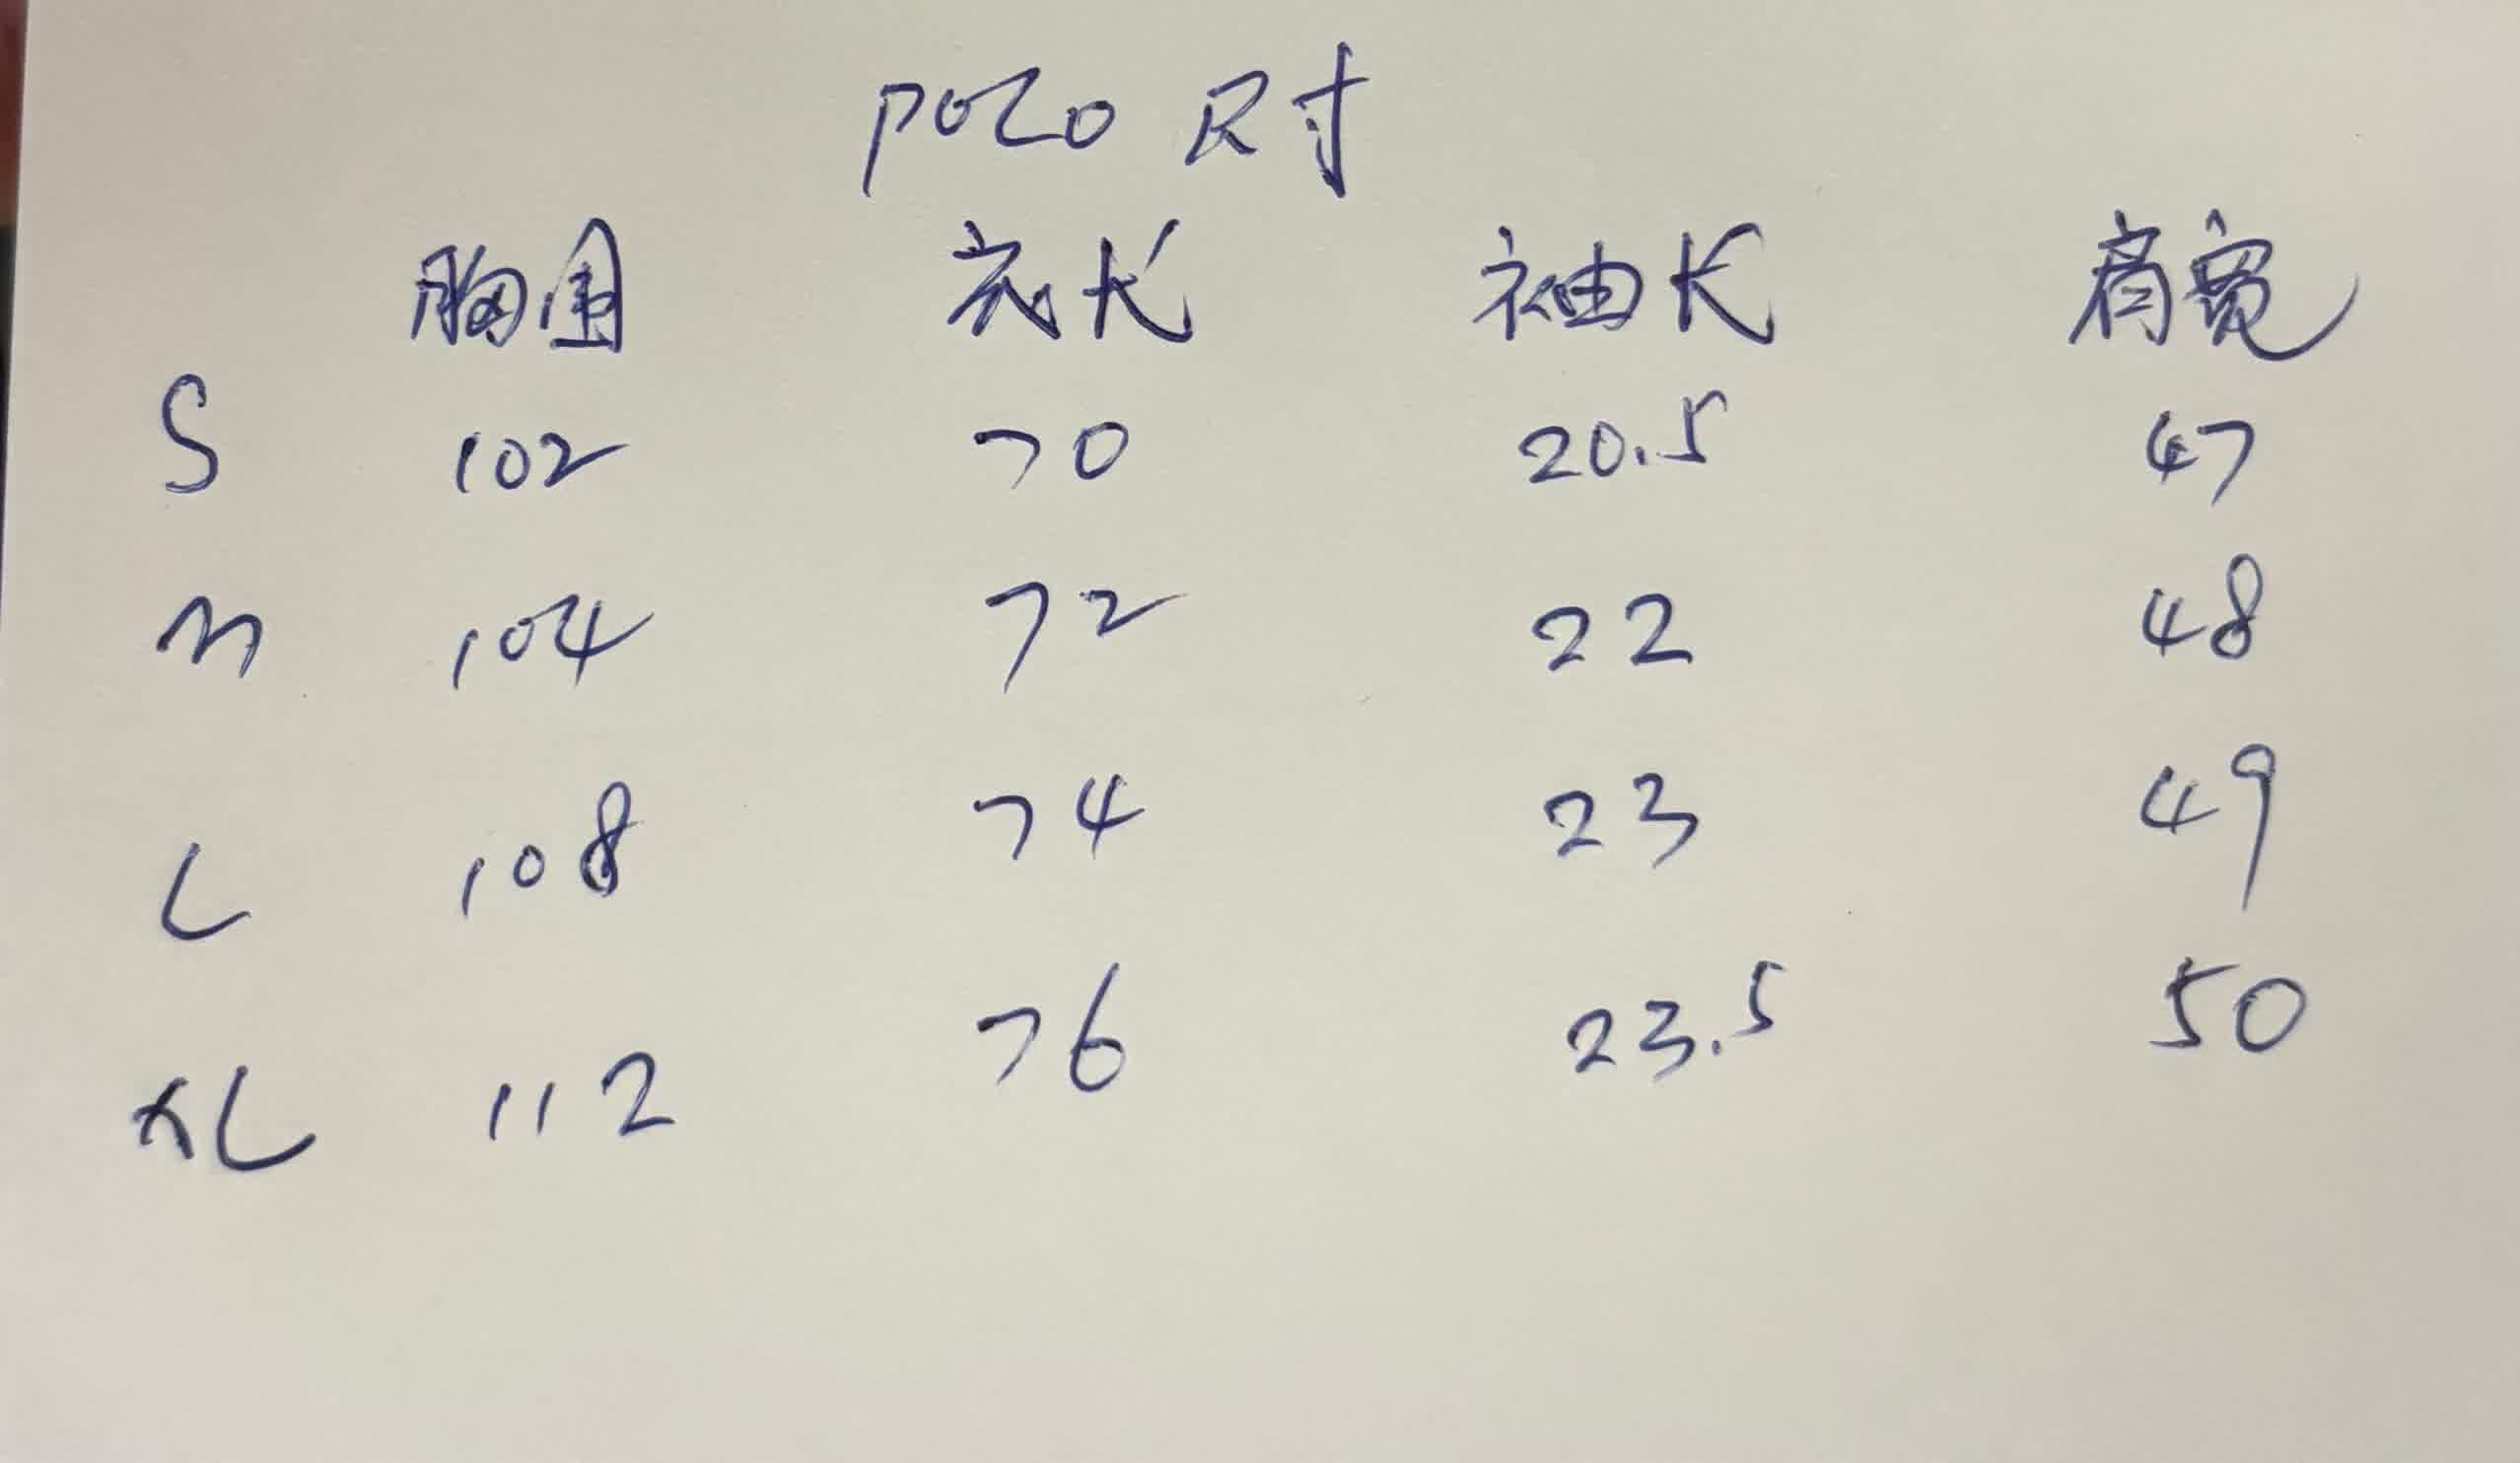 POLO 尺寸
胸围 衣长 袖长 肩宽
S 102 70 20.5 47
M 104 72 22 48
L 108 74 23 49
XL 112 76 23.5 50